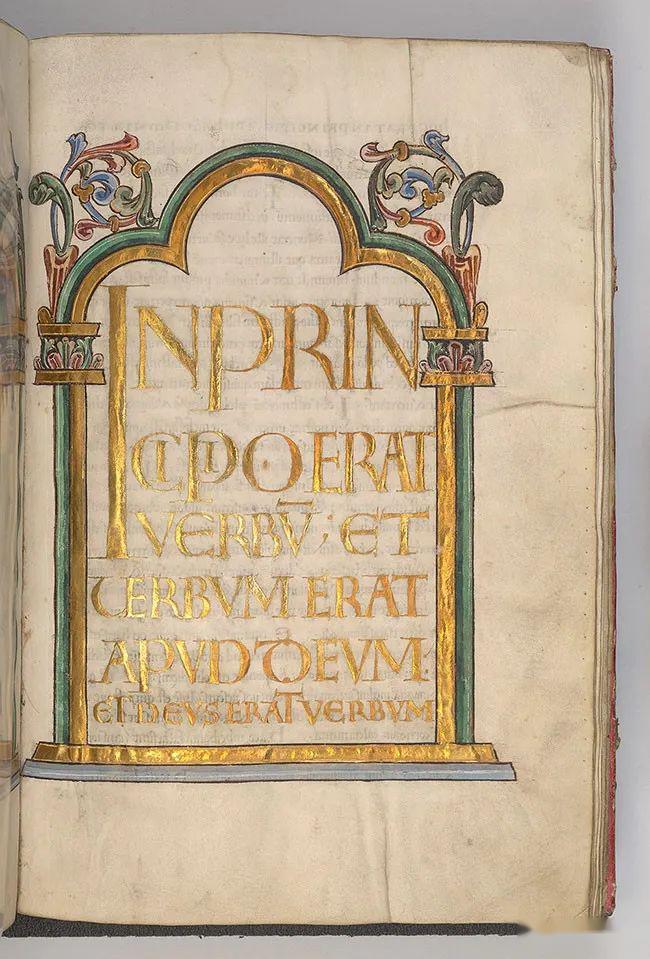 INPRIN
CIPIO ERAT
VERBŪ; ET
VERBVM ERAT
APVD DEVM·
ET DEVS ERAT VERBVM